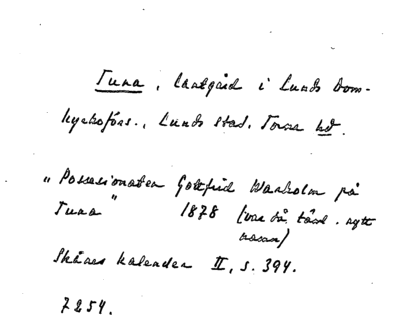 Tuna, lantgård i Lunds dom-
kyrkoförs., Lunds stad. Torna hd.
"Possessionaten Gottfrid Warholm på
Tuna" 1878 (var då tänd. nytt
namn)
Skånes kalender II, s. 394.
7254.